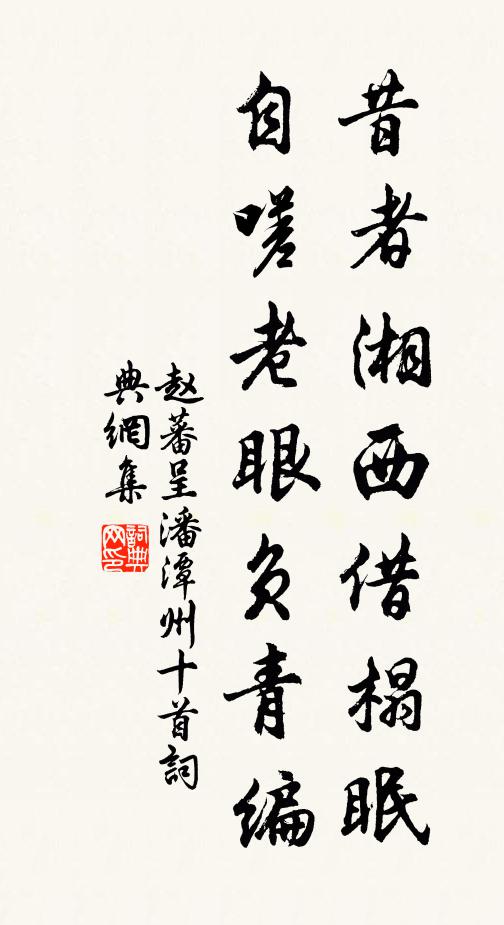 昔者湘西借榻眠
自嗟老眼负青编
赵蕃呈潘潭州十首詞
典網集
詞典
网印